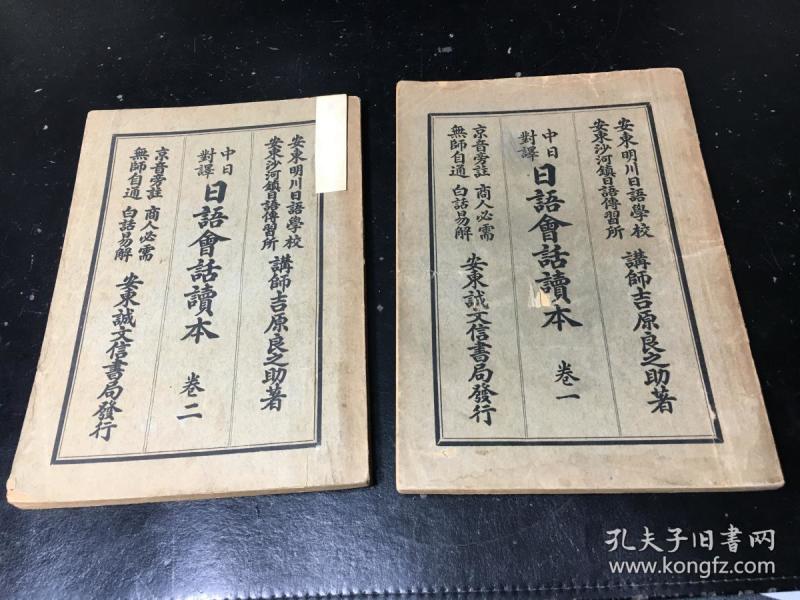 安東明川日語學校
安東沙河鎮日語傳習所
講師吉原良之助著
中日
對譯
日語會話讀本
卷二
京音旁註 商人必需
無師自通 白話易解
安東誠文信書局發行
安東明川日語學校
安東沙河鎮日語傳習所
講師吉原良之助著
中日
對譯
日語會話讀本
卷一
京音旁註 商人必需
無師自通 白話易解
安東誠文信書局發行
孔夫子旧书网
www.kongfz.com